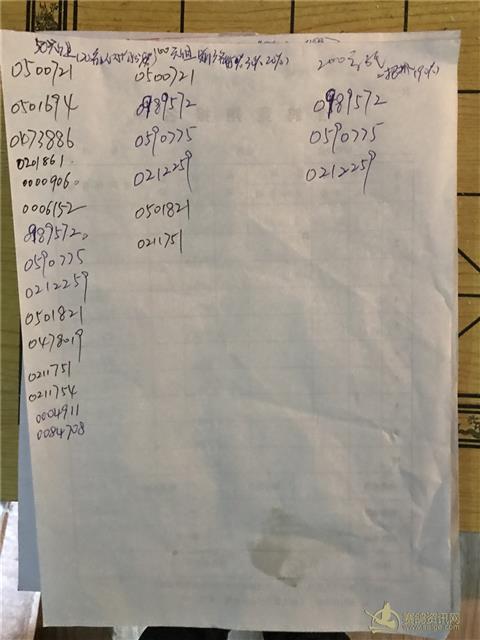 0500721
0501694
0473886
0201861.
0000906.
0006152
0989572.
0590775
0212259
0501821
0478019
0211751
0211754
0004911
0084708
100元组
0500721
0989572
0590775
0212259
0501821
0211751
200元
0989572
0590775
0212259
赛鸽资讯网